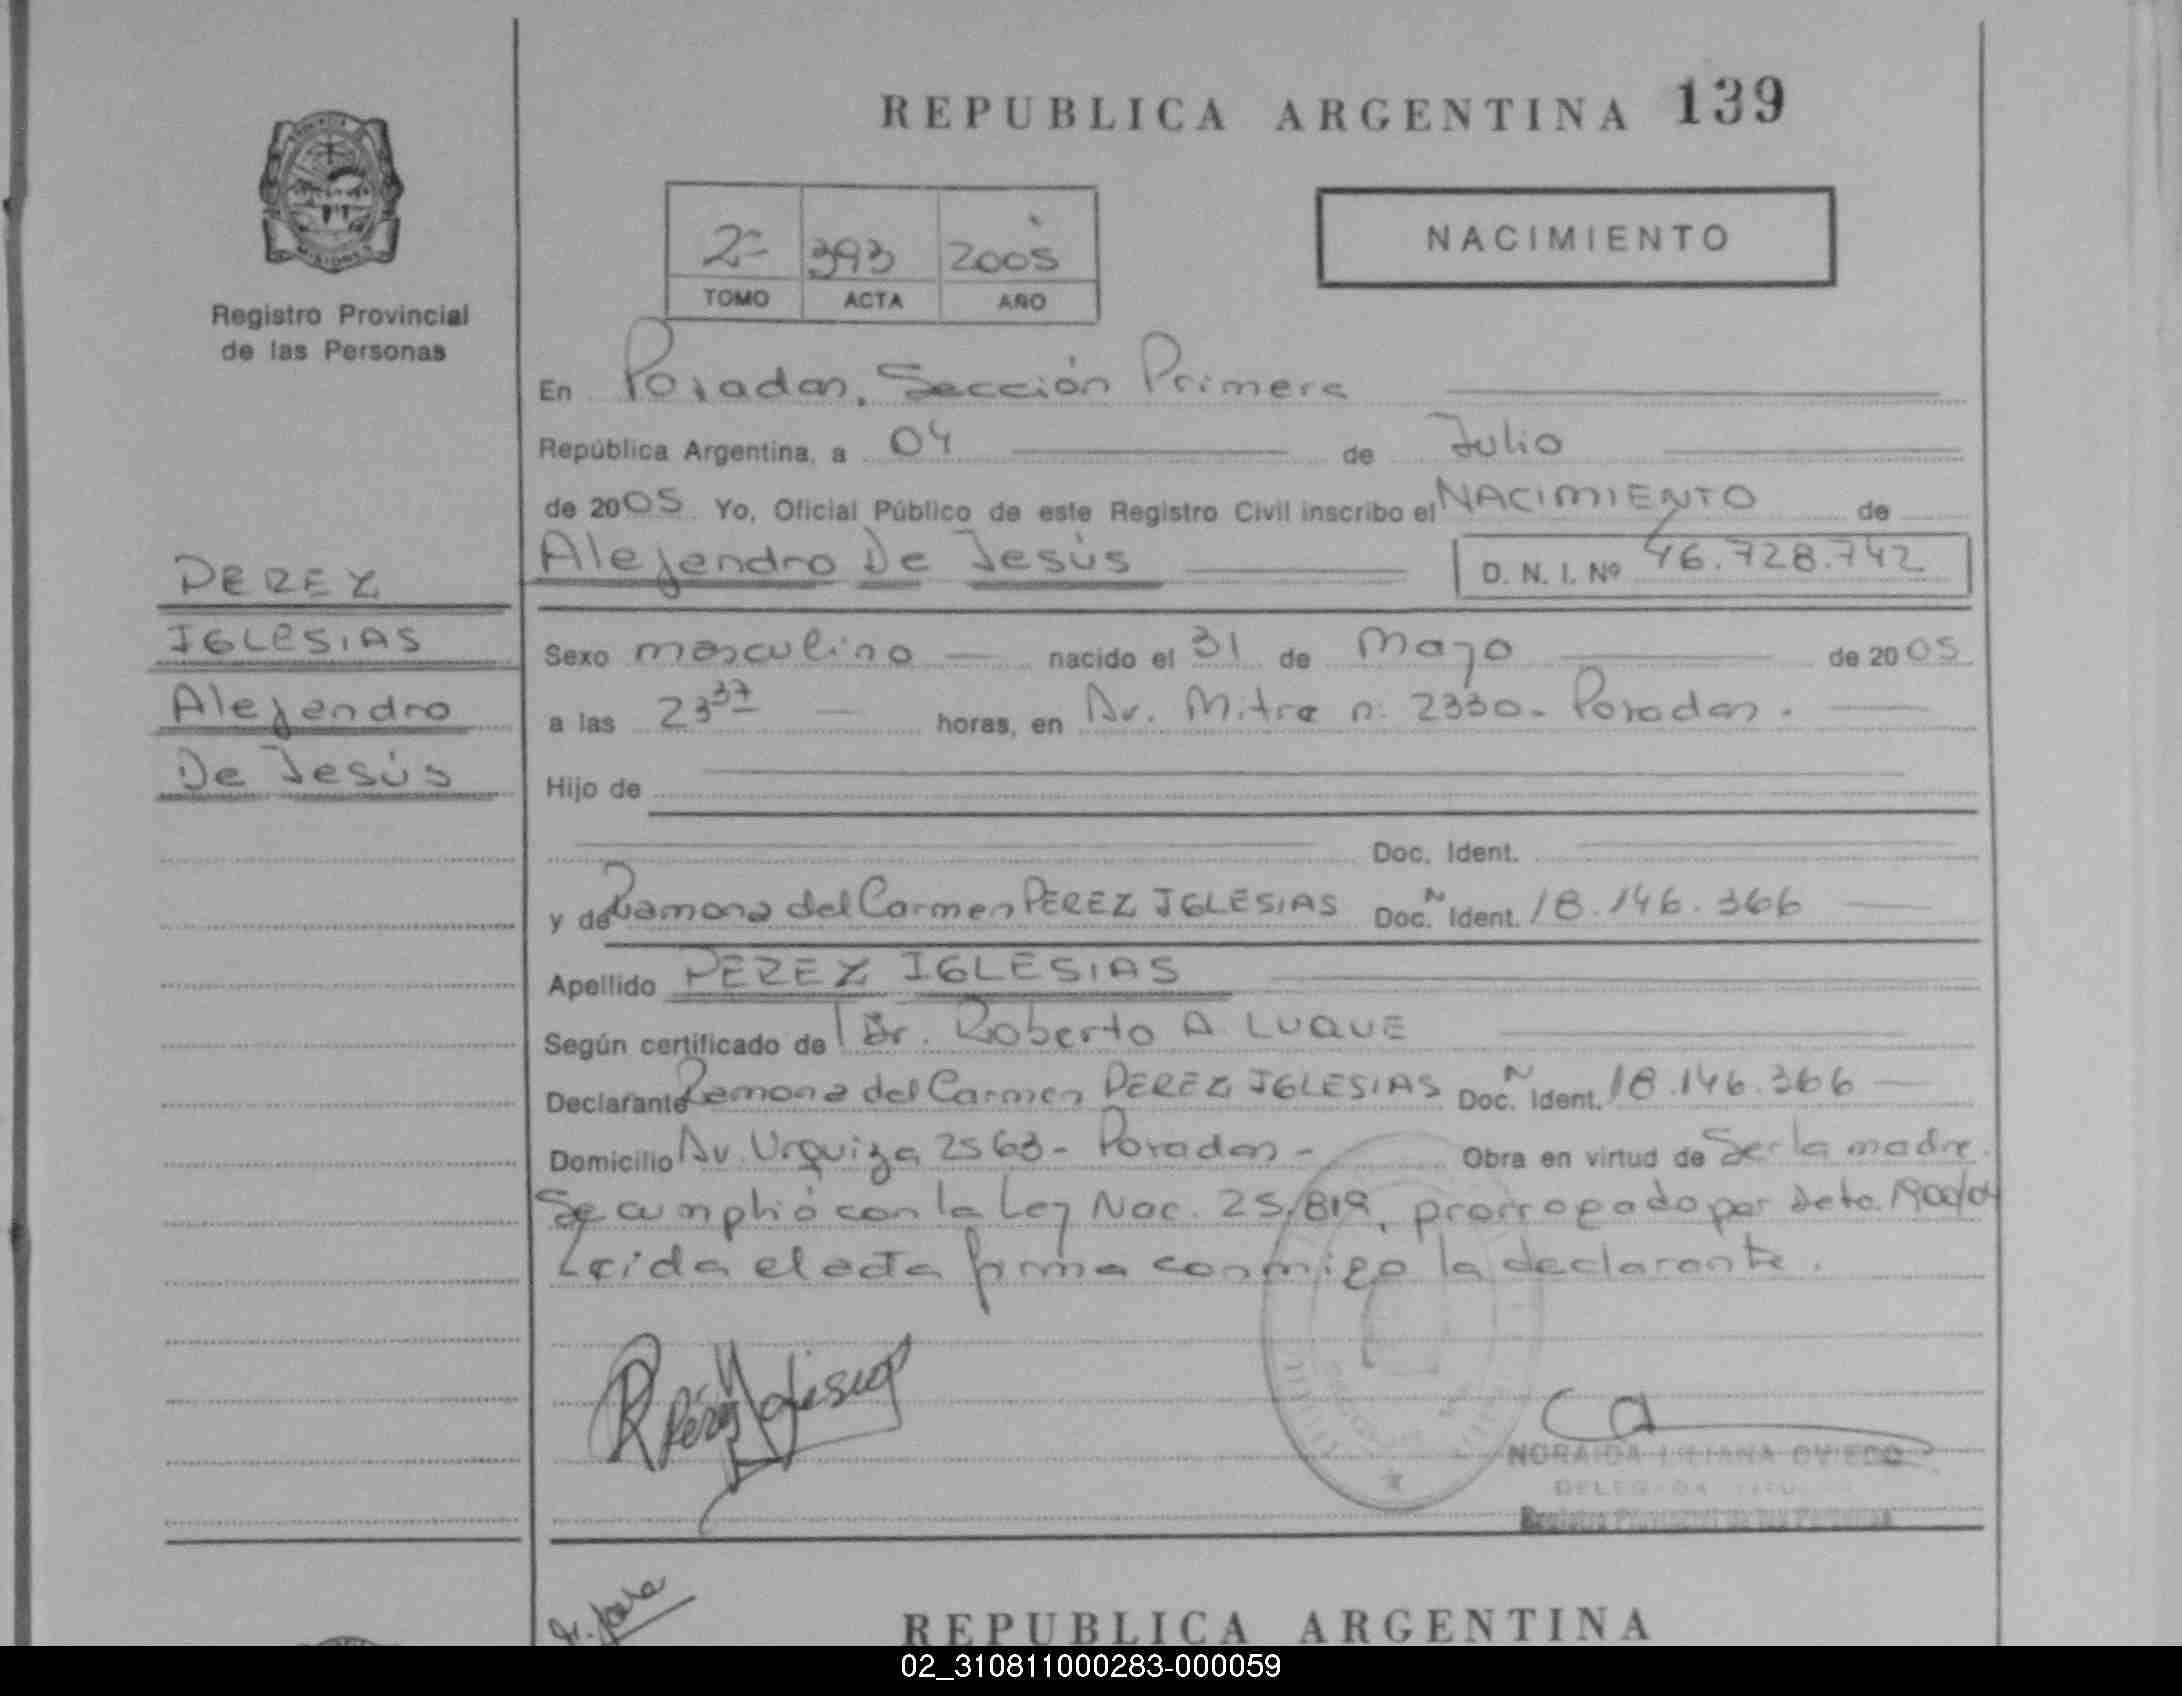 REPUBLICA ARGENTINA 139
Registro Provincial
de las Personas
2º 393 2005
TOMO ACTA AÑO
NACIMIENTO
En Posadas, Sección Primera
República Argentina, a 04 de Julio
de 2005 Yo, Oficial Público de este Registro Civil inscribo el NACIMIENTO de
Alejandro De Jesús D. N. I. Nº 46.728.742
PEREZ
IGLESIAS
Alejandro
De Jesús
Sexo masculino nacido el 31 de Mayo de 2005
a las 23 37 horas, en Av. Mitre n: 2330- Posadas.
Hijo de
Doc. Ident.
y de Ramona del Carmen PEREZ IGLESIAS Doc. Ident. 18.146.366
Apellido PEREZ IGLESIAS
Según certificado de Dr. Roberto A LUQUE
Declarante Ramona del Carmen PEREZ IGLESIAS Doc. Ident. 18.146.366
Domicilio Av. Urquiza 2563- Posadas- Obra en virtud de Ser la madre.
Se cumplió con la Ley Nac. 25.819, prorrogado por Dcto. 1900/04
Leida el acta firma conmigo la declarante.
R Pérez Iglesias
NORAIDA LILIANA OVIEDO
DELEGADA
Registro Provincial de las Personas
REPUBLICA ARGENTINA
02_310811000283-000059